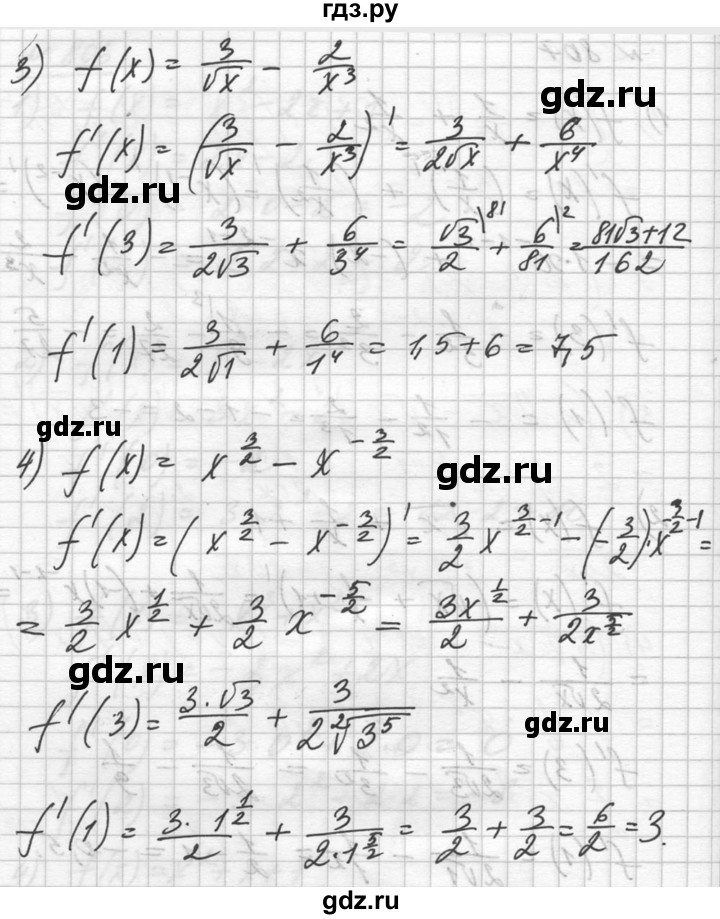 гдз.ру
3) f(x) = 3/√x − 2/x³
gdz.ru
f'(x) = (3/√x − 2/x³)' = 3/(2√x) + 6/x⁴
gdz.ru
f'(3) = 3/(2√3) + 6/3⁴ = √3/2 |81 + 6/81 |2 = (81√3+12)/162
f'(1) = 3/(2√1) + 6/1⁴ = 1,5+6 = 7,5
gdz.ru
4) f(x) = x^(3/2) − x^(−3/2)
gdz.ru
f'(x) = (x^(3/2) − x^(−3/2))' = 3/2 x^(3/2−1) − (−3/2)·x^(−3/2−1) =
= 3/2 x^(1/2) + 3/2 x^(−5/2) = 3x^(1/2)/2 + 3/(2x^(5/2))
gdz.ru
f'(3) = 3·√3/2 + 3/(2 ²√3⁵)
gdz.ru
f'(1) = 3·1^(1/2)/2 + 3/(2·1^(5/2)) = 3/2 + 3/2 = 6/2 = 3.
gdz.ru